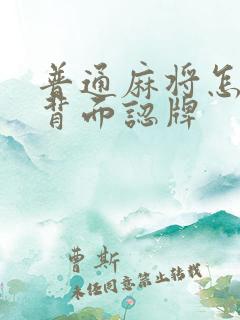 普通麻将怎
背而認牌
曹斯
未经同意禁止转载